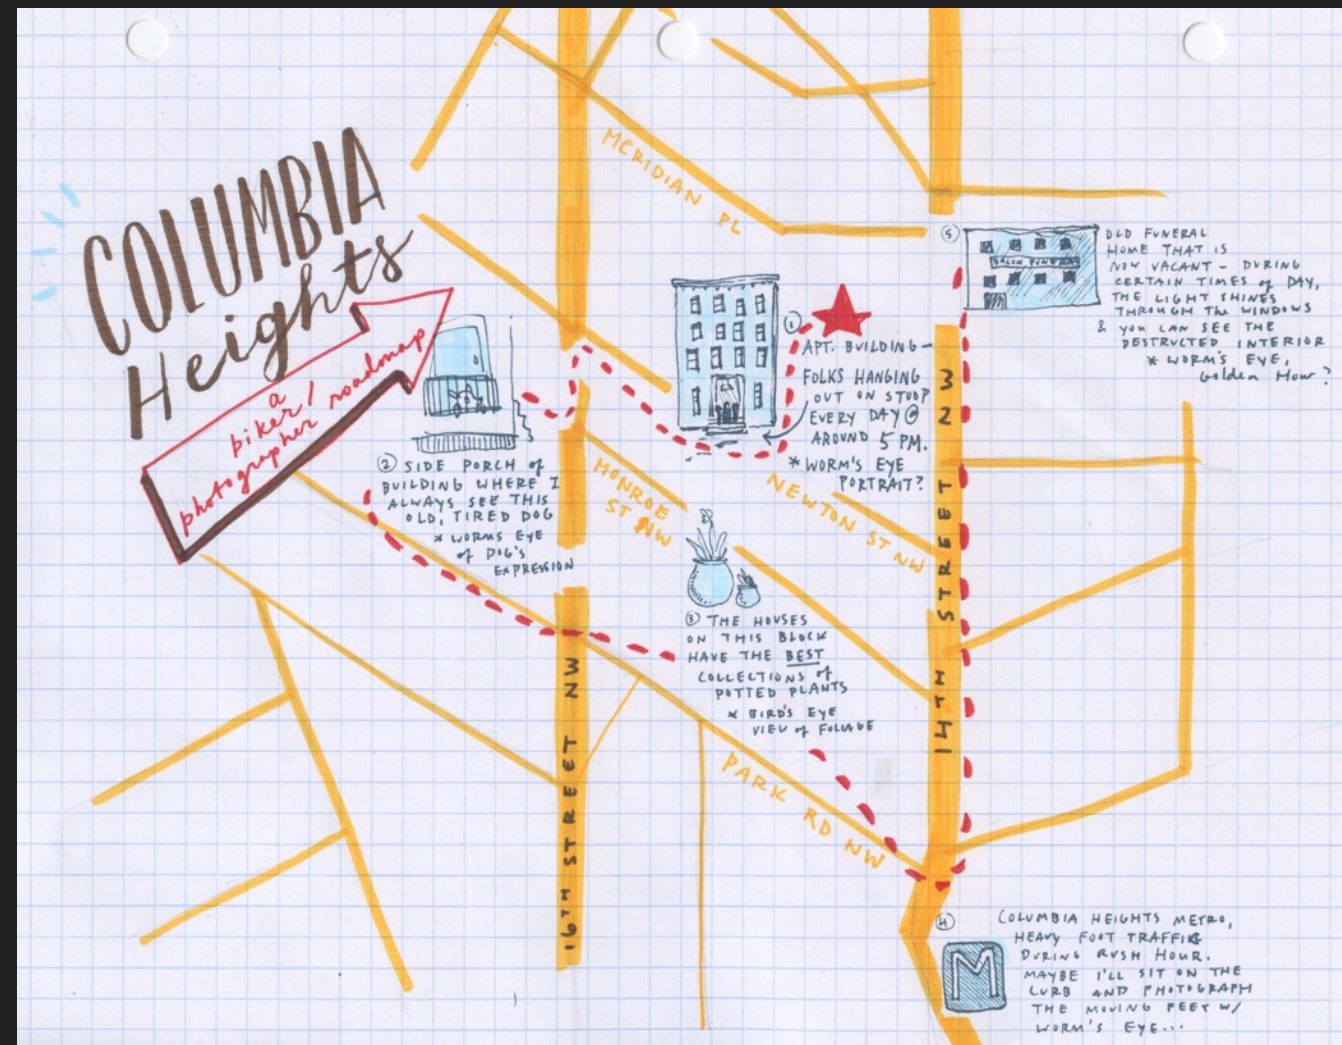 COLUMBIA
Heights
a
biker/
photographer roadmap
MERIDIAN PL
① APT. BUILDING—
FOLKS HANGING
OUT ON STOOP
EVERY DAY @
AROUND 5 PM.
* WORM'S EYE
PORTRAIT?
② SIDE PORCH of
BUILDING WHERE I
ALWAYS SEE THIS
OLD, TIRED DOG
* WORMS EYE
of DOG'S
EXPRESSION
MONROE
ST NW
NEWTON ST NW
③ THE HOUSES
ON THIS BLOCK
HAVE THE BEST
COLLECTIONS of
POTTED PLANTS
* BIRD'S EYE
VIEW of FOLIAGE
PARK RD NW
16TH STREET NW
14TH STREET NW
④ COLUMBIA HEIGHTS METRO,
HEAVY FOOT TRAFFIC
DURING RUSH HOUR.
MAYBE I'LL SIT ON THE
CURB AND PHOTOGRAPH
THE MOVING FEET W/
WORM'S EYE...
M
⑤ OLD FUNERAL
HOME THAT IS
NOW VACANT - DURING
CERTAIN TIMES of DAY,
THE LIGHT SHINES
THROUGH The WINDOWS
& YOU CAN SEE THE
DESTRUCTED INTERIOR
* WORM'S EYE,
Golden Hour?
FUNERAL